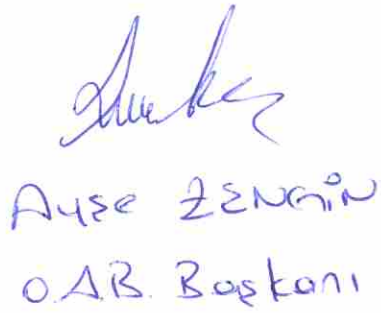 Ayşe ZENGİN
O.A.B. Başkanı